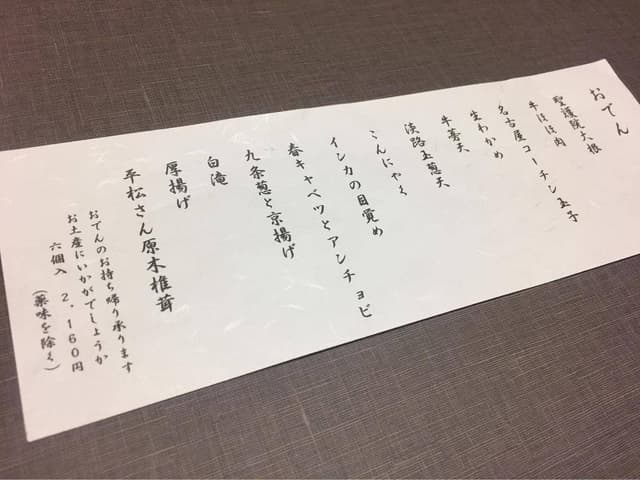 おでん
聖護院大根
牛ほほ肉
名古屋コーチン玉子
生わかめ
牛蒡天
淡路玉葱天
こんにゃく
インカの目覚め
春キャベツとアンチョビ
九条葱と京揚げ
白滝
厚揚げ
平松さん原木椎茸
おでんのお持ち帰り承ります
お土産にいかがでしょうか
六個入 2,160円
(薬味を除く)